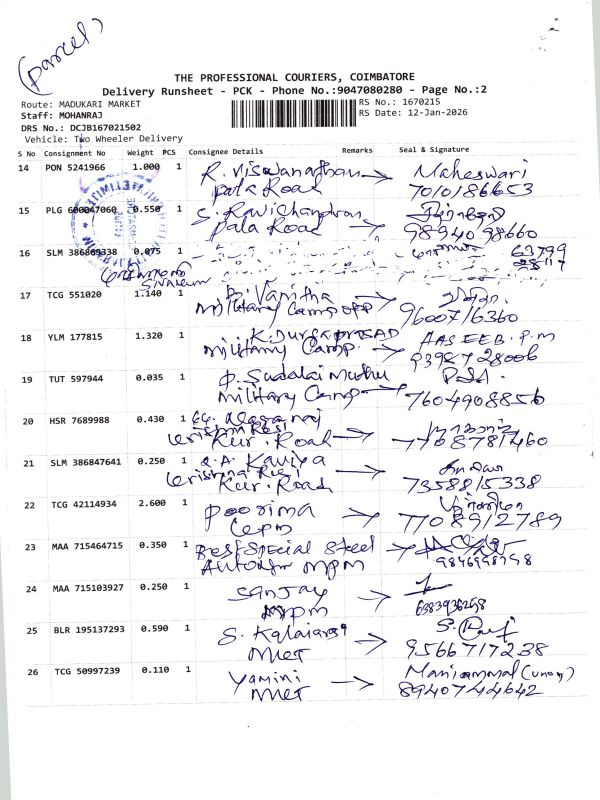 (Parcel)
THE PROFESSIONAL COURIERS, COIMBATORE
Delivery Runsheet - PCK - Phone No.:9047080280 - Page No.:2
Route: MADUKARI MARKET
RS No.: 1670215
Staff: MOHANRAJ
RS Date: 12-Jan-2026
DRS No.: DCJB167021502
Vehicle: Two Wheeler Delivery
S No Consignment No Weight PCS Consignee Details Remarks Seal & Signature
14 PON 5241966 1.000 1 R. Viswanathan Maheswari
Pala Road 7010186653
15 PLG 600047060 0.550 1 S. Ravichandran
Pala Road 9894098660
16 SLM 386869338 0.075 1 63799
17 TCG 551020 1.140 1 B. Vanitha
Military Camp opp 9600716360
18 YLM 177815 1.320 1 K. Durgaprasad HASEEB. P.M
Military Camp. 9398728006
19 TUT 597944 0.035 1 P. Sudalai Muthu
Military Camp 7604908856
20 HSR 7689988 0.430 1
Kur. Road 7708787460
21 SLM 386847641 0.250 1 A. Kaviya காவியா
Krishna Resi
Kur. Road 7358815338
22 TCG 42114934 2.600 1 Poorima பூர்ணிமா
7708912789
23 MAA 715464715 0.350 1 Best Special Steel
MPM 9846998798
24 MAA 715103927 0.250 1 Sanjay
MPM 6383936298
25 BLR 195137293 0.590 1 S. Kalaiarasi
MIET 9566717238
26 TCG 50997239 0.110 1 Yamini Mariammal
MIET 8940744642